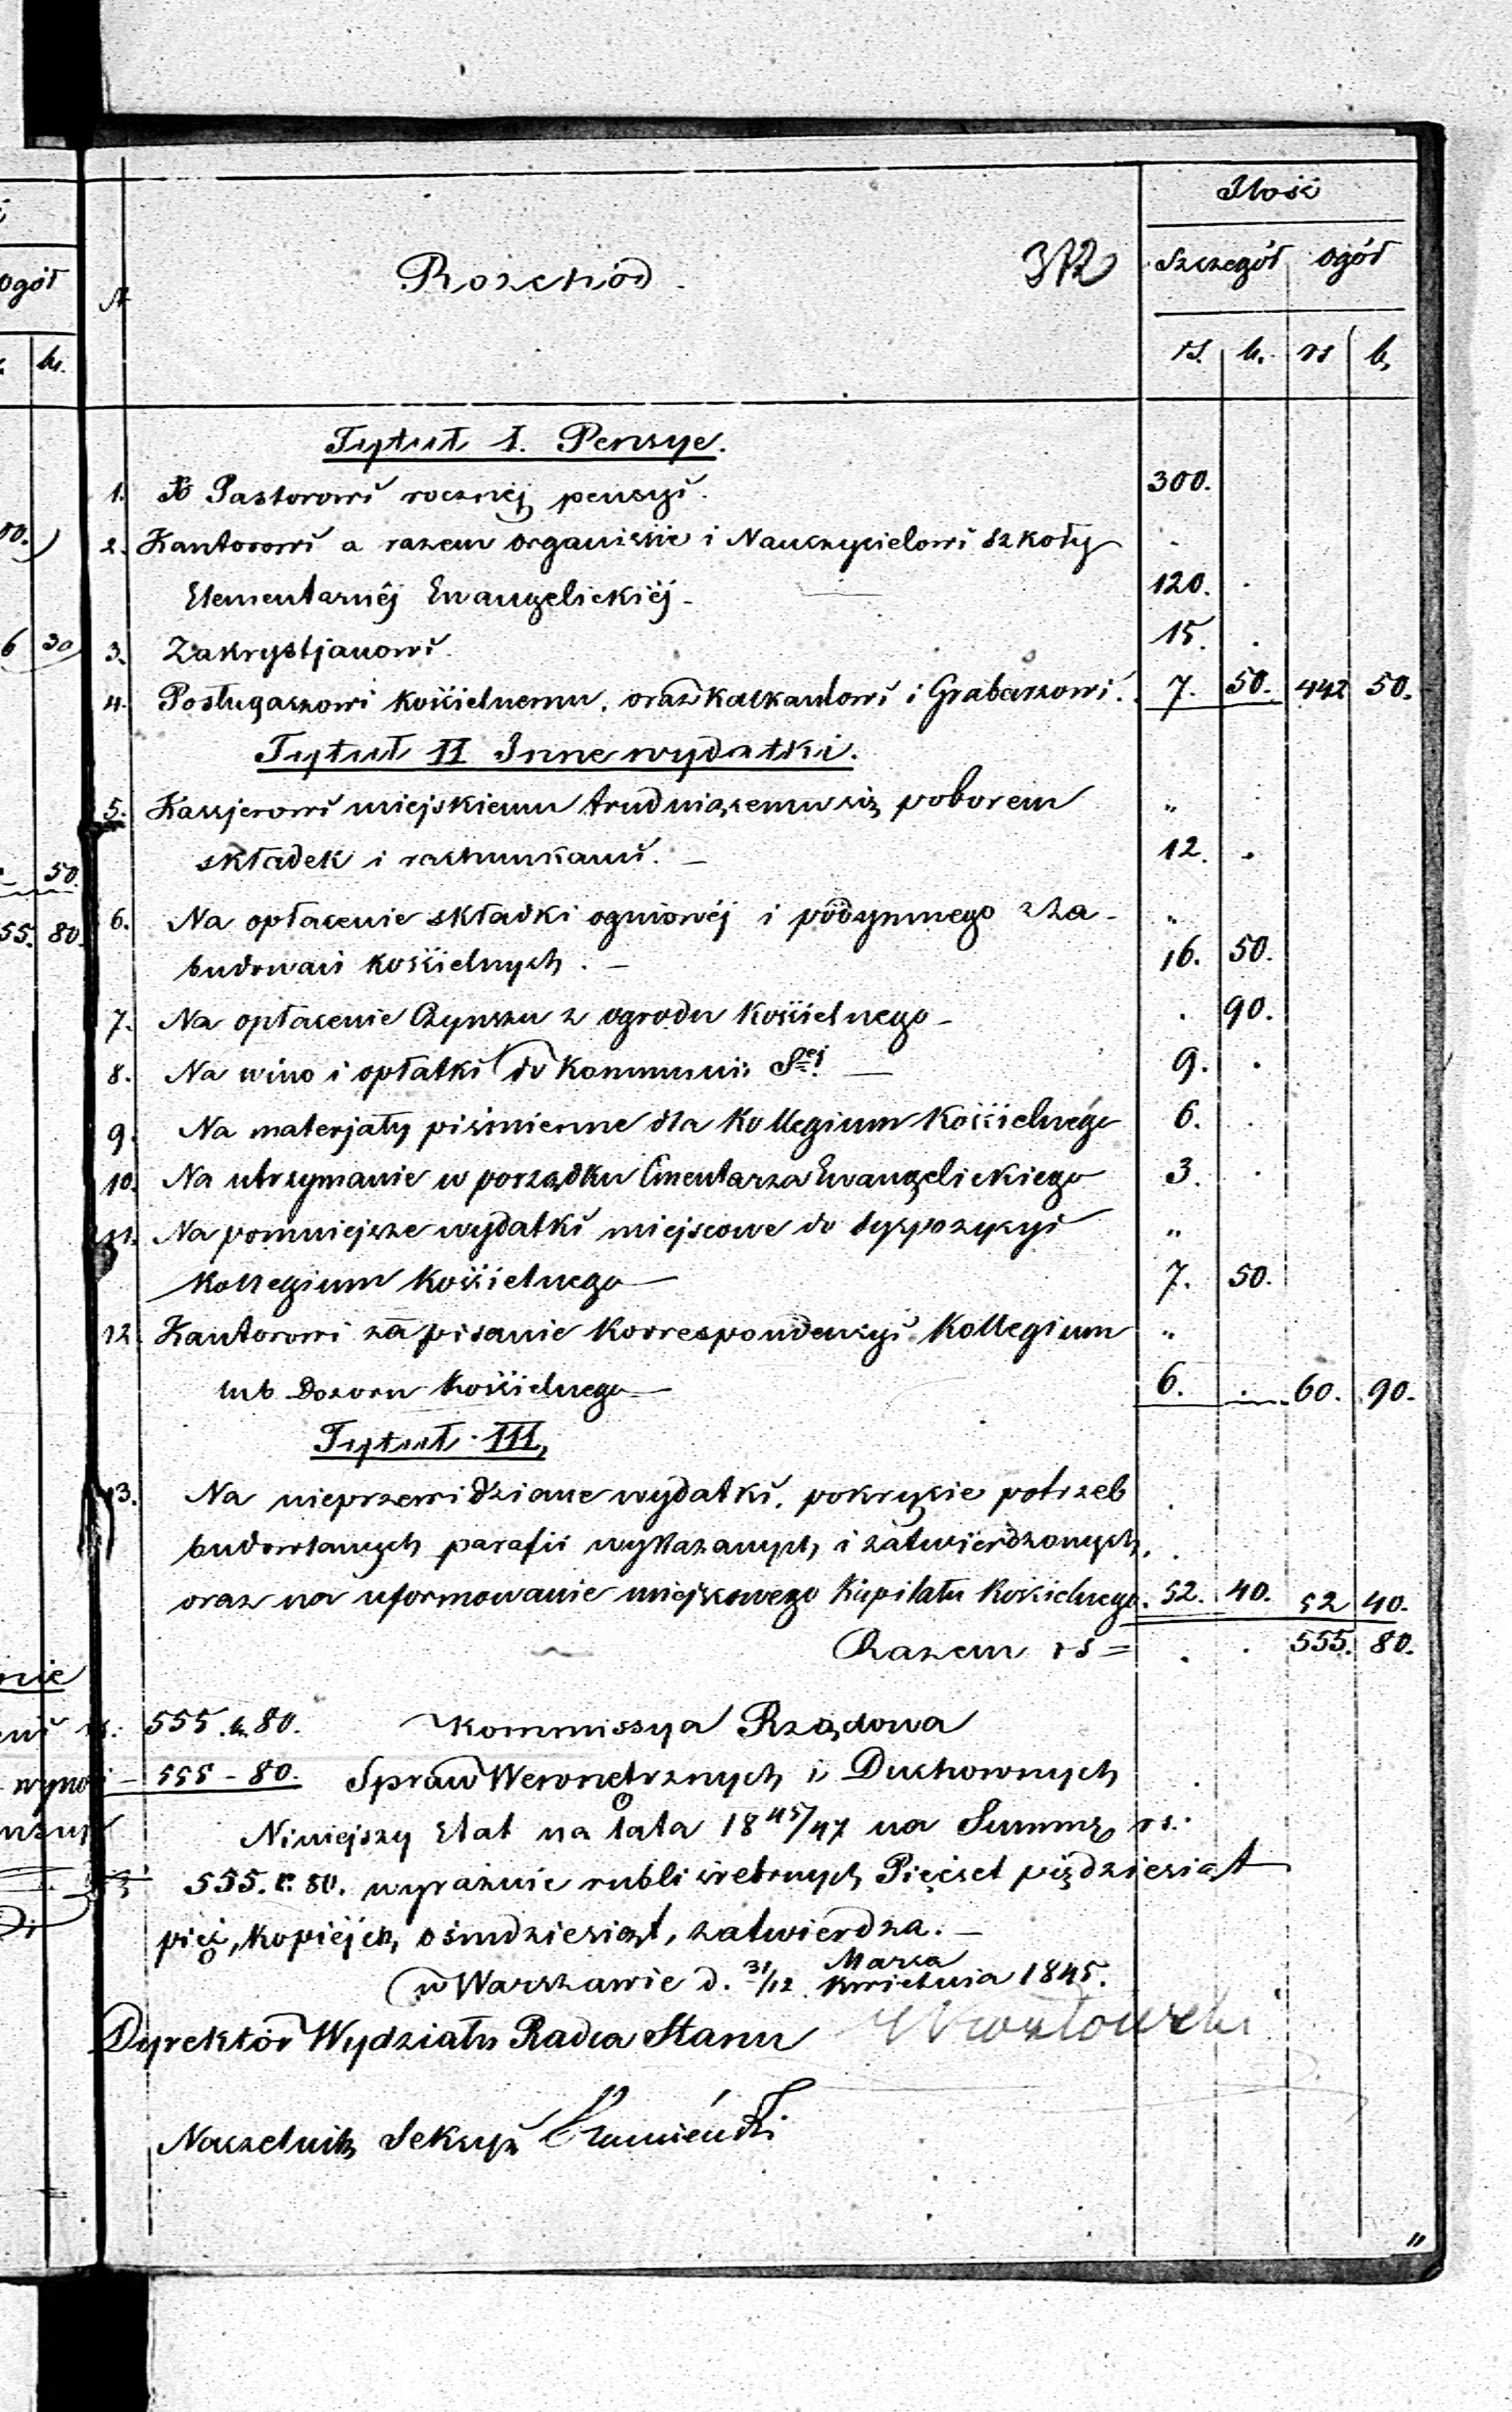 Ilość
Rozchód. 372 Szczegół ogół
№
rs. k. rs k.
Tytuł I. Pensye.
1. X Pastorowi rocznéj pensyi. 300.
2. Kantorowi a razem organiście i Nauczycielowi szkoły
Elementarnéj Ewangelickiéj - 120. .
3. Zakrystjanowi. 15. .
4. Posługaczowi kościelnemu, oraz Kalkantowi i Grabarzowi. 7. 50. 442 50.
Tytuł II Inne wydatki.
5. Kassjerowi miejskiemu trudniącemu się poborem "
składek i rachunkami. - 12. .
6. Na opłacenie składki ogniowéj i podymnego z za- "
budowań kościelnych. - 16. 50.
7. Na opłacenie Czynszu z ogrodu kościelnego - . 90.
8. Na wino i opłatki do Kommunii Stéj — 9. .
9. Na materjały piśmienne dla Kollegium Kościelnego 6. .
10. Na utrzymanie w porządku Cmentarza Ewangelickiego 3. .
11. Na pomniejsze wydatki miejscowe do dyspozycyi "
Kollegium Kościelnego — 7. 50.
12. Kantorowi za pisanie Korrespondencyi Kollegium "
lub Dozoru Kościelnego — 6. . 60. 90.
Tytuł III,
13. Na nieprzewidziane wydatki, pokrycie potrzeb .
budowlanych parafii wykazanych i zatwierdzonych, .
oraz na uformowanie miejscowego Kapitału Kościelnego. 52. 40. 52 40.
Razem rs = . . 555. 80.
555. k. 80. Kommissya Rządowa
555 - 80. Spraw Wewnetrznych i Duchownych
Niniejszy Etat na lata 1845/47 na Summę rs.
555. k. 80. wyraźnie rubli srebrnych Pięćset piędziesiąt
pięć, kopiéjek ośmdziesiąt, zatwierdza. -
w Warszawie d. 31/12 Marca
Kwietnia 1845.
Dyrektor Wydziału Radca Stanu
Naczelnik Sekcyi